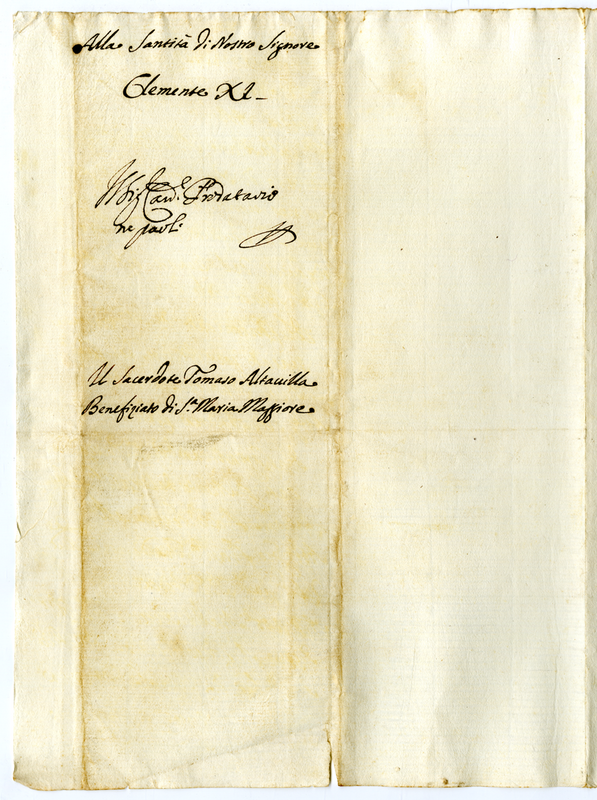 Alla Santità di Nostro Signore
Clemente XI
Sig.r Card.e Prodatario
ne parli
Il Sacerdote Tomaso Altavilla
Benefiziato di S.ta Maria Maggiore